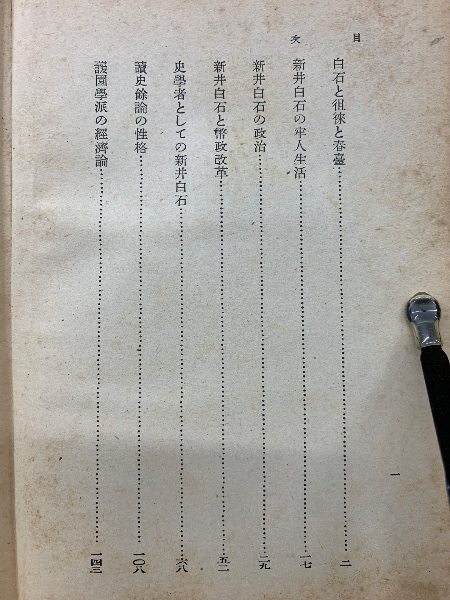 目次
白石と徂徠と春臺……二
新井白石の牢人生活……一七
新井白石の政治……二九
新井白石と幣政改革……五二
史學者としての新井白石……六八
讀史餘論の性格……一〇八
蘐園學派の經濟論……一四三
一